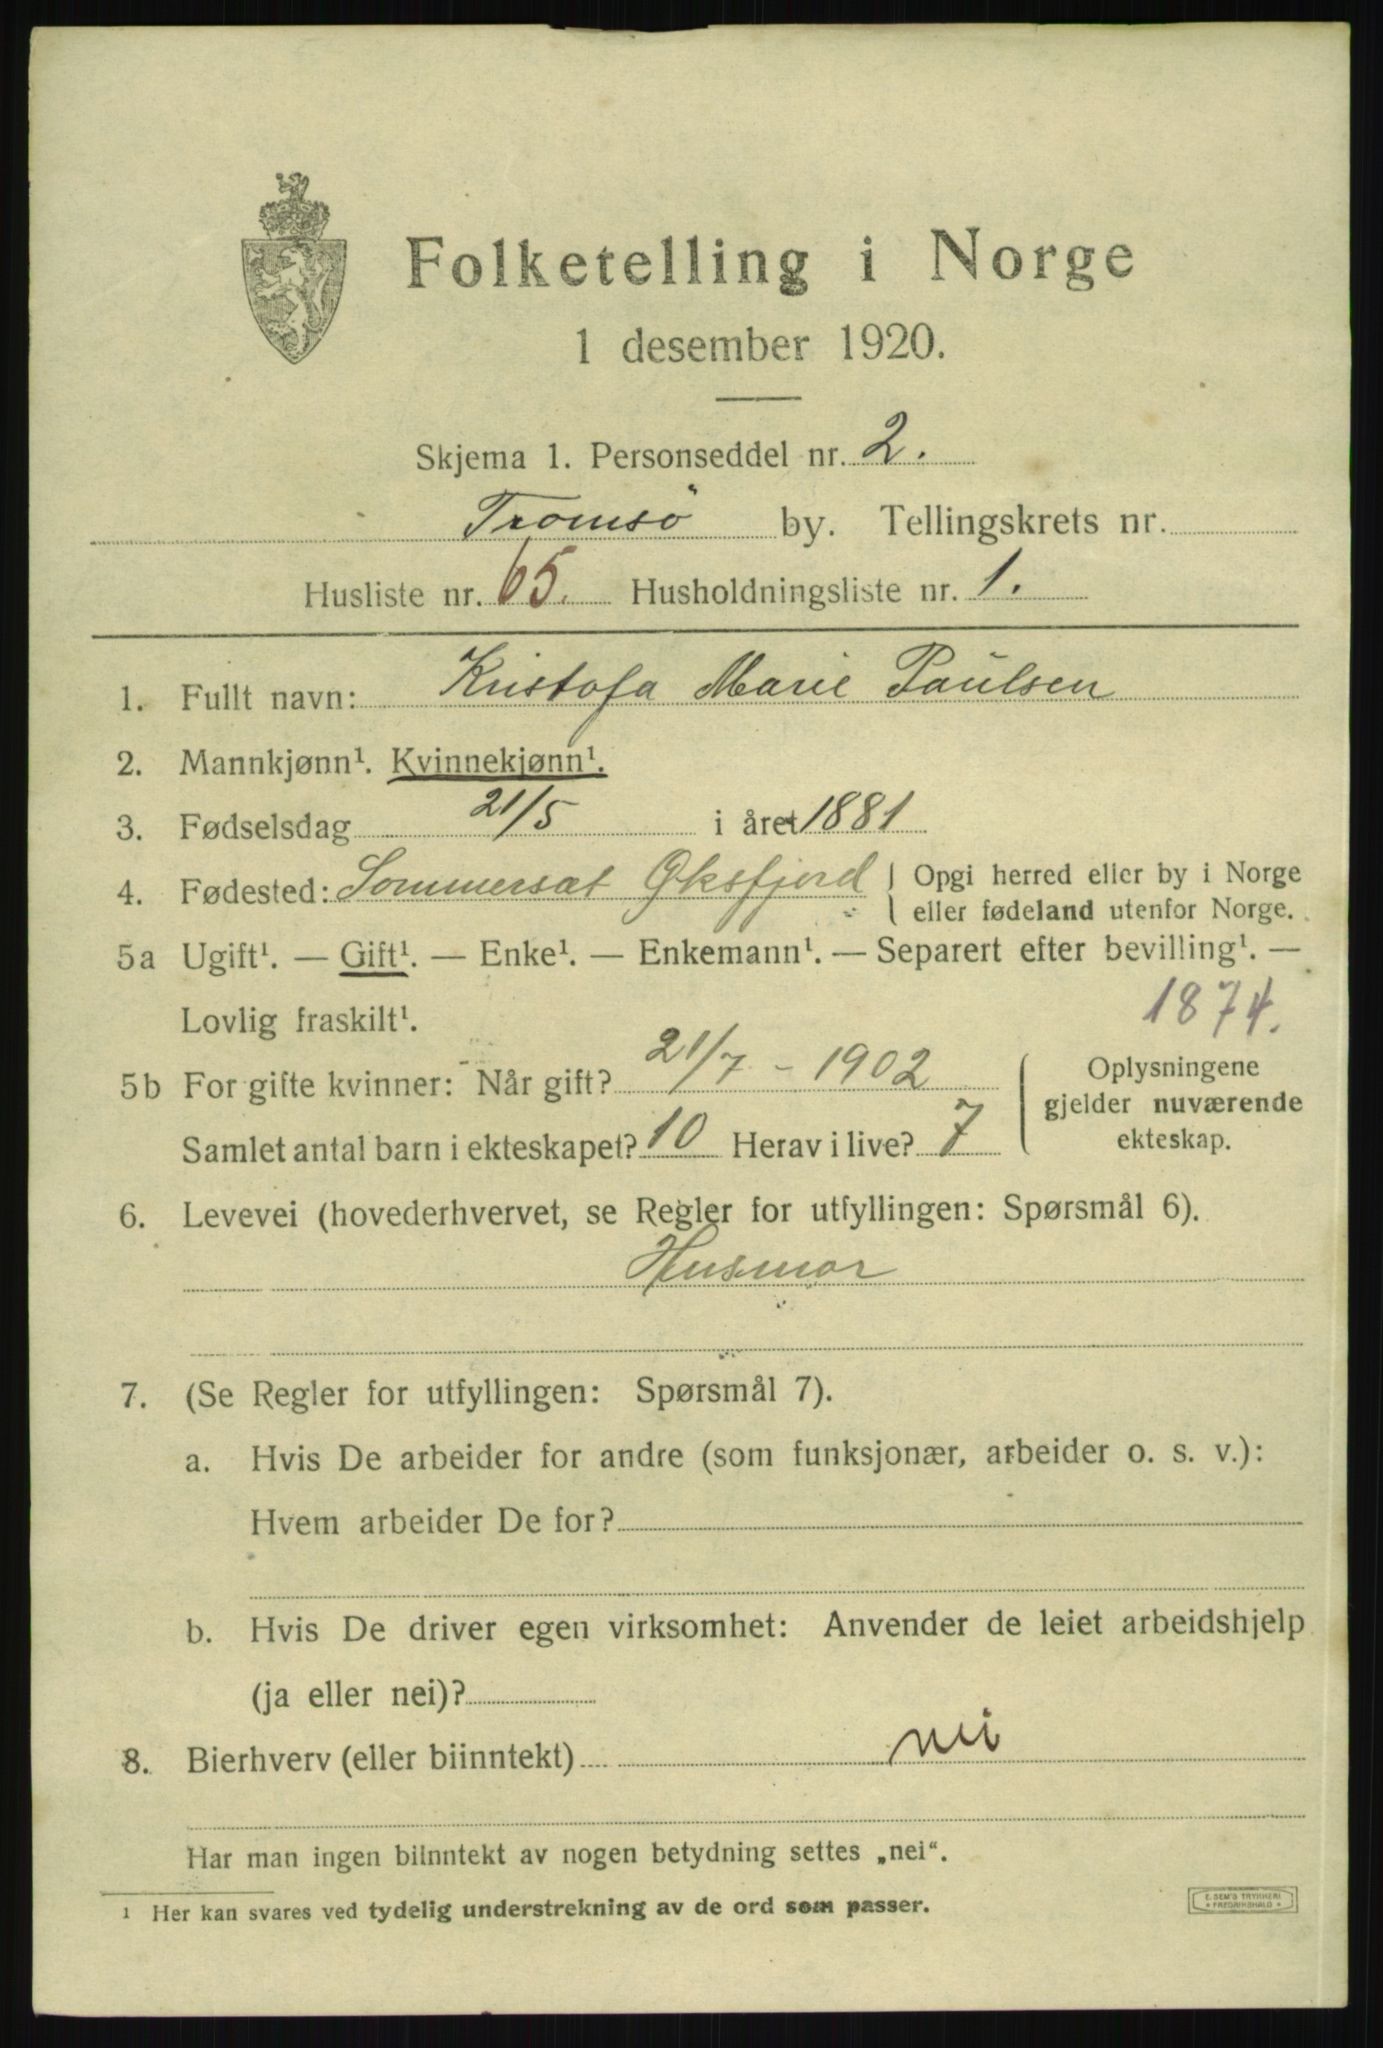 Folketelling i Norge
1 desember 1920.
Skjema 1. Personseddel nr. 2.
Tromsö by. Tellingskrets nr.
Husliste nr. 65. Husholdningsliste nr. 1.
1. Fullt navn: Kristofa Marie Paulsen
2. Mannkjønn¹. Kvinnekjønn¹.
3. Fødselsdag 21/5 i året 1881
4. Fødested: Sommersæt Øksfjord Opgi herred eller by i Norge
eller fødeland utenfor Norge.
5a Ugift¹. — Gift¹. — Enke¹. — Enkemann¹. — Separert efter bevilling¹. —
Lovlig fraskilt¹. 1874.
5b For gifte kvinner: Når gift? 21/7 - 1902 Oplysningene
gjelder nuværende
Samlet antal barn i ekteskapet? 10 Herav i live? 7 ekteskap.
6. Levevei (hovederhvervet, se Regler for utfyllingen: Spørsmål 6).
Husmor
7. (Se Regler for utfyllingen: Spørsmål 7).
a. Hvis De arbeider for andre (som funksjonær, arbeider o. s. v.):
Hvem arbeider De for?
b. Hvis De driver egen virksomhet: Anvender de leiet arbeidshjelp
(ja eller nei)?
8. Bierhverv (eller biinntekt) nei
Har man ingen biinntekt av nogen betydning settes „nei“.
1 Her kan svares ved tydelig understrekning av de ord som passer.
E. SEM'S TRYKKERI
FREDRIKSHALD